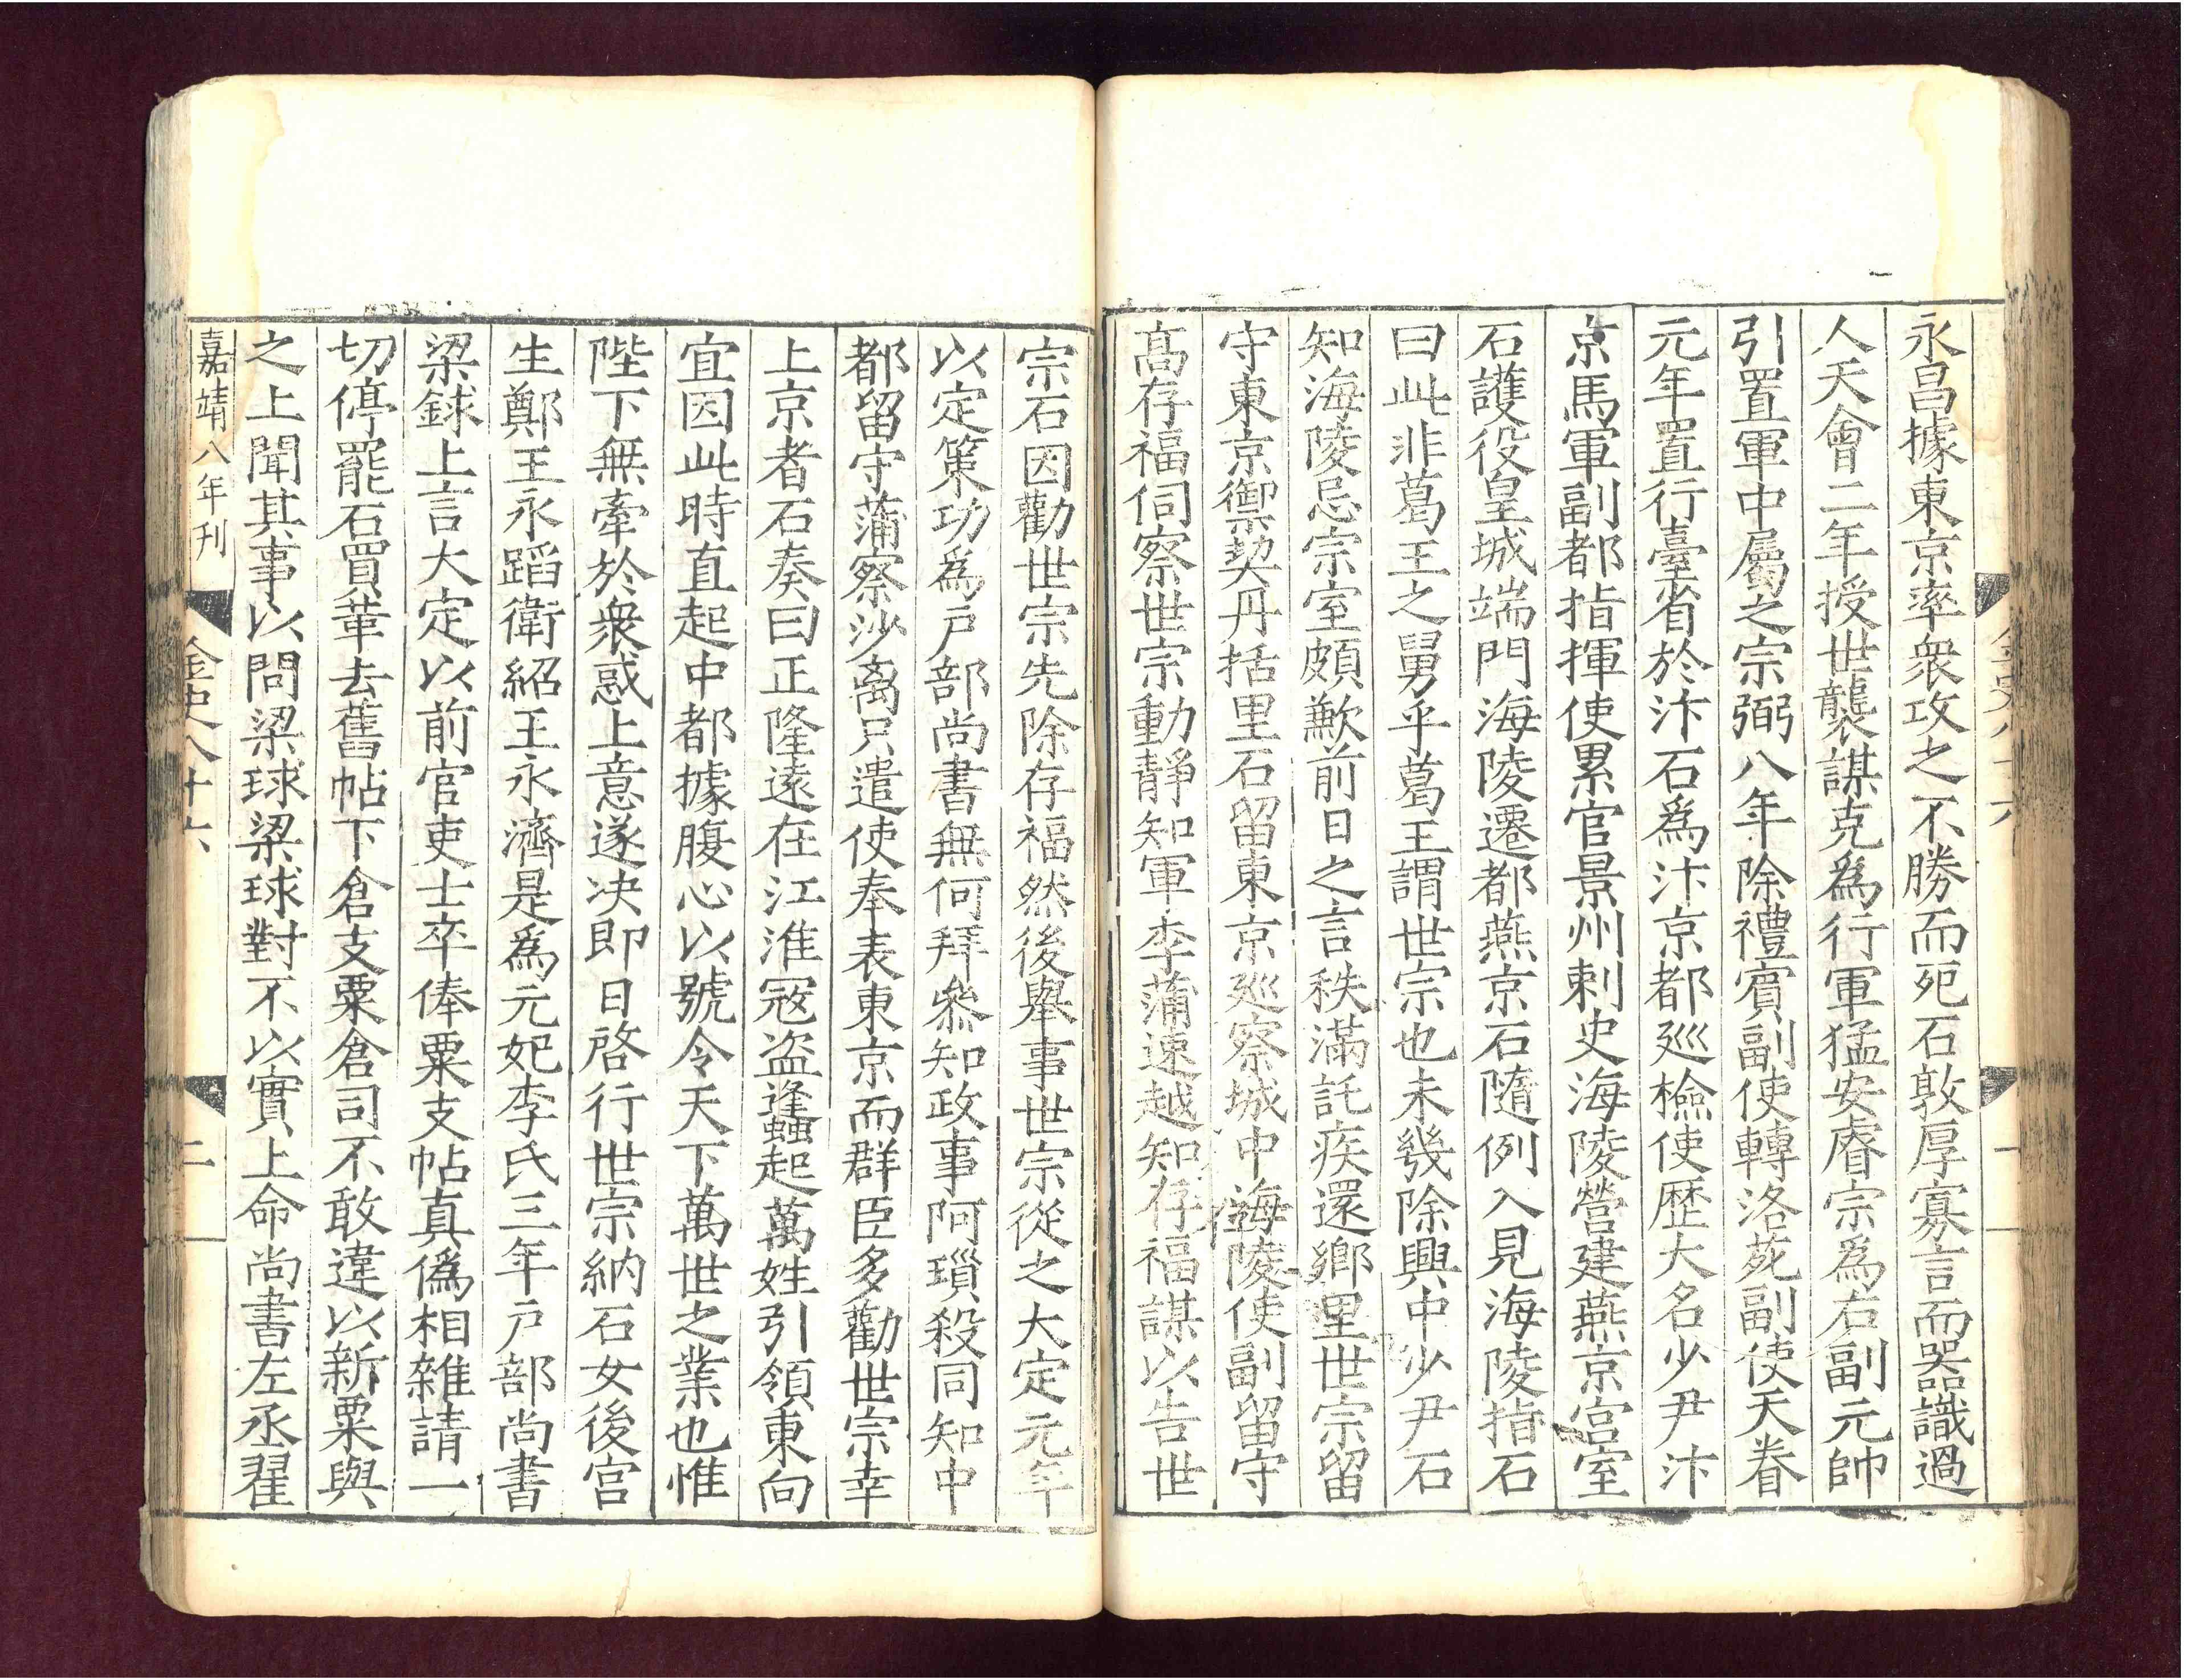 永昌據東京率衆攻之不勝而死石敦厚寡言而器識過
人天會二年授世襲謀克爲行軍猛安睿宗爲右副元帥
引置軍中屬之宗弼八年除禮賓副使轉洛苑副使天眷
元年置行臺省於汴石爲汴京都巡檢使歷大名少尹汴
京馬軍副都指揮使累官景州刺史海陵營建燕京宮室
石護役皇城端門海陵遷都燕京石隨例入見海陵指石
曰此非葛王之舅乎葛王謂世宗也未幾除興中少尹石
知海陵忌宗室頗歉前日之言秩滿託疾還鄉里世宗留
守東京禦契丹括里石留東京巡察城中海陵使副留守
髙存福伺察世宗動靜知軍李蒲速越知存福謀以告世
宗石因勸世宗先除存福然後舉事世宗從之大定元年
以定策功爲戶部尚書無何拜參知政事阿瑣殺同知中
都留守蒲察沙离只遣使奉表東京而群臣多勸世宗幸
上京者石奏曰正隆遠在江淮寇盜蠭起萬姓引領東向
宜因此時直起中都據腹心以號令天下萬世之業也惟
陛下無牽於衆惑上意遂决即日啓行世宗納石女後宮
生鄭王永蹈衛紹王永濟是爲元妃李氏三年戶部尚書
梁銶上言大定以前官吏士卒俸粟支帖真僞相雜請一
切停罷石買革去舊帖下倉支粟倉司不敢違以新粟與
之上聞其事以問梁球梁球對不以實上命尚書左丞翟
嘉靖八年刊
金史八十六
二